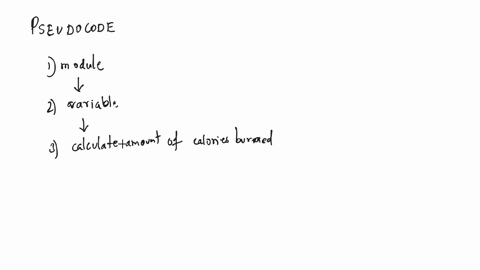 PSEUDOCODE
1) module
↓
2) variable.
↓
3) calculate+amount of calories burned